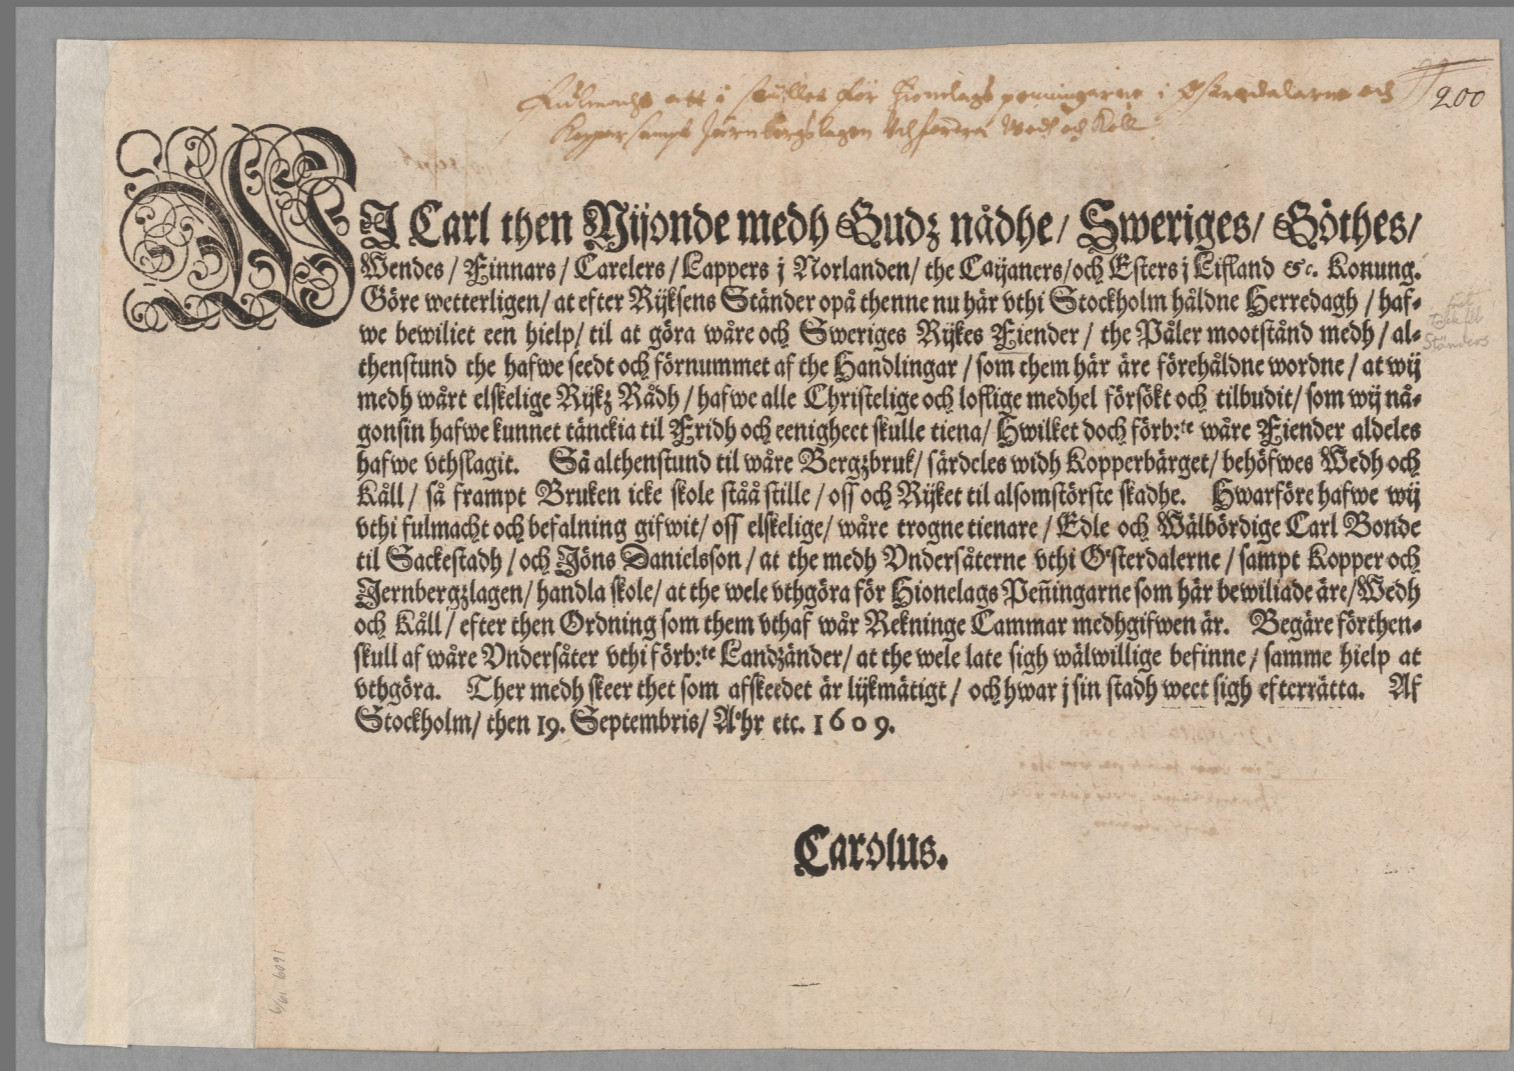 Fulmacht att i stället för Hionelags penningarne i Österdalarne och
200
Kopper sampt Järnbergslagen Uthfordra Wedh och Kåll
WJ Carl then Nijonde medh Gudz nådhe/ Sweriges/ Göthes/
Wendes/ Finnars/ Carelers/ Lappers j Norlanden/ the Caijaners/ och Esters j Lifland &c. Konung.
Göre wetterligen/ at efter Rijksens Ständer opå thenne nu här vthi Stockholm håldne Herredagh/ haf-
we bewiliet een hielp/ til at göra wåre och Sweriges Rijkes Fiender/ the Påler mootstånd medh/ al-
thenstund the hafwe seedt och förnummet af the Handlingar/ som them här äre förehåldne wordne/ at wij
medh wårt elskelige Rijkz Rådh/ hafwe alle Christelige och loflige medhel försökt och tilbudit/ som wij nå-
gonsin hafwe kunnet tänckia til Fridh och eenigheet skulle tiena/ Hwilket doch förb:te wåre Fiender aldeles
hafwe vthslagit. Så althenstund til wåre Bergzbruk/ särdeles widh Kopperbärget/ behöfwes Wedh och
Kåll/ så frampt Bruken icke skole ståå stille/ oss och Rijket til alsomstörste skadhe. Hwarföre hafwe wij
vthi fulmacht och befalning gifwit/ oss elskelige/ wåre trogne tienare/ Edle och Wälbördige Carl Bonde
til Sackestadh/ och Jöns Danielsson/ at the medh Vndersåterne vthi Österdalerne/ sampt Kopper och
Jernbergzlagen/ handla skole/ at the wele vthgöra för Hionelags Peñingarne som här bewiliade äre/ Wedh
och Kåll/ efter then Ordning som them vthaf wår Rekninge Cammar medhgifwen är. Begäre förthen-
skull af wåre Vndersåter vthi förb:te Landzänder/ at the wele late sigh wälwillige befinne/ samme hielp at
vthgöra. Ther medh skeer thet som afskeedet är lijkmätigt/ och hwar j sin stadh weet sigh efterrätta. Af
Stockholm/ then 19. Septembris/ Åhr etc. 1609.
Carolus.
1609 19/9